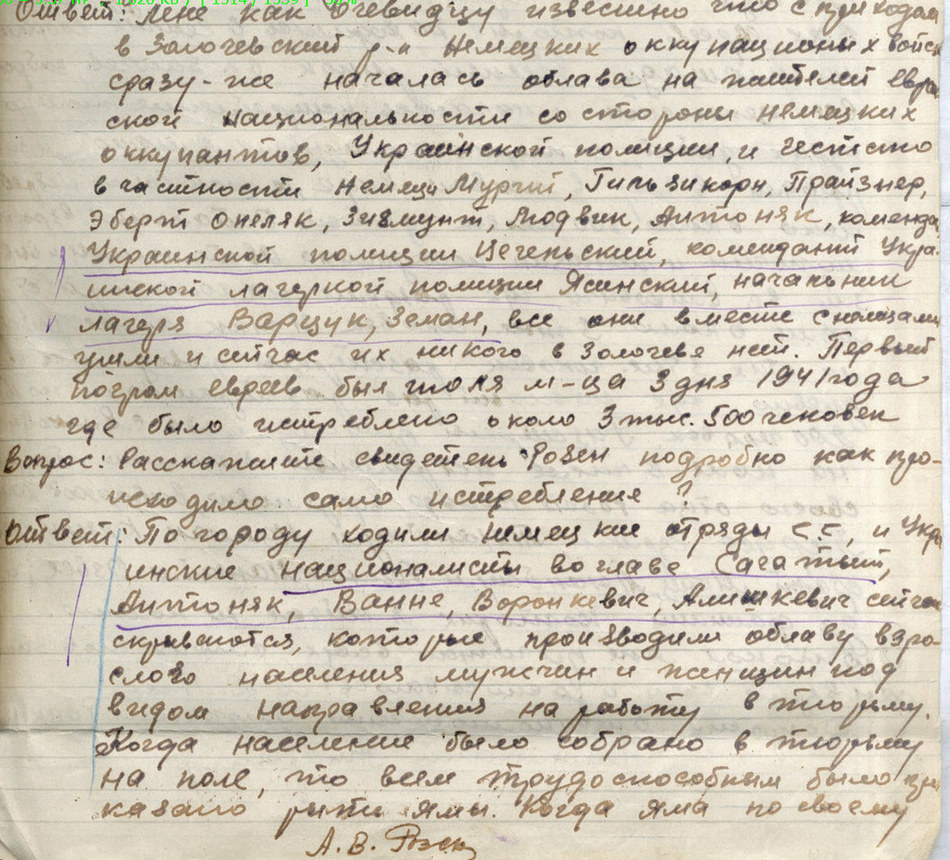 Ответ: Мне как очевидцу известно что с приходом
в Золочевский р-н Немецких оккупационых войск
сразу-же началась облава на жителей евре
ской национальности со стороны немецких
оккупантов, Украинской полиции, и гестапо
в частности Немецы Мургий, Гильзикорн, Прайзнер,
Эберт Опеляк, Зигмунт, Людвик, Антоняк, коменда
Украинской полиции Цегельский, комендант Укра-
инской лагерной полиции Ясинский, начальник
лагеря Варцук, Земан, все они вместе с немцами
ушли и сейчас их никого в Золочеве нет. Первый
погром евреев был июля м-ца 3 дня 1941 года
где было истреблено около 3 тыс. 500 человек
Вопрос: Расскажите свидетель Розен подробно как про-
исходило само истребление?
Ответ: По городу ходили немецкие отряды СС, и Укра
инские националисты во главе Сагатый,
Антоняк, Ванне, Воронкевич, Алишкевич сейчас
скрываются, которые производили облаву взро-
слого населения мужчин и женщин под
видом направления на работу в тюрьму.
Когда население было собрано в тюрьму
на поле, то всем трудоспособным было при
казано рыть ямы. Когда яма по своему
А. В. Розен